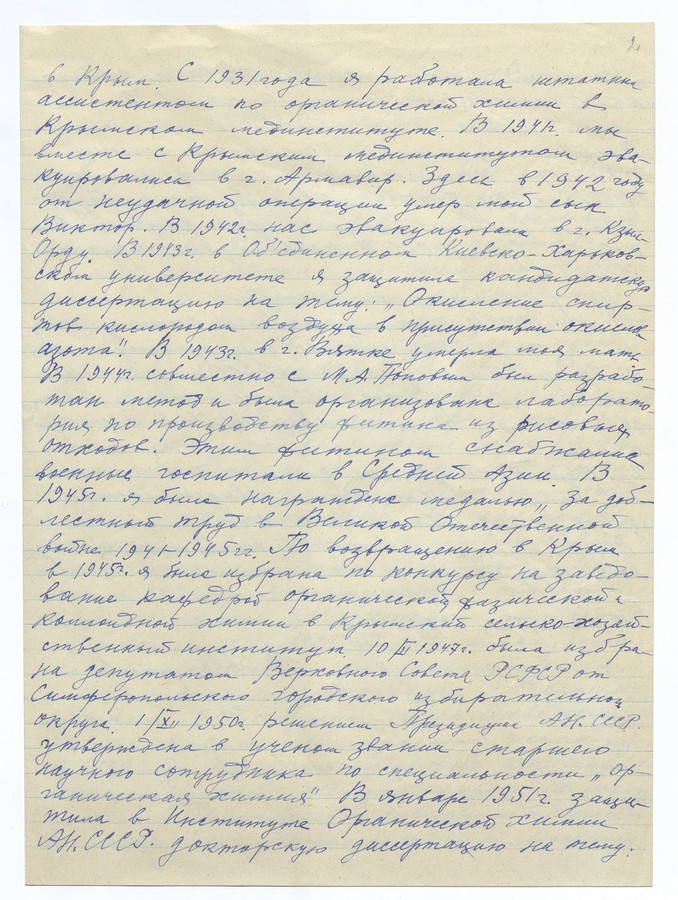 2
в Крым. С 1931 года я работала штатным
ассистентом по органической химии в
Крымском мединституте. В 1941г. мы
вместе с Крымским мединститутом эва-
куировались в г. Армавир. Здесь в 1942 году
от неудачной операции умер мой сын
Виктор. В 1942г нас эвакуировали в г. Кзыл-
Орду. В 1943г. в Объединенном Киевско-Харьков-
ском университете я защитила кандидатскую
диссертацию на тему: „Окисление спир-
тов кислородом воздуха в присутствии окислов
азота". В 1943г. в г. Вятке умерла моя мать
В 1944г. совместно с М.А. Поповым был разрабо-
тан метод и была организована лаборато-
рия по производству фитина из рисовых
отходов. Этим фитином снабжались
военные госпитали в Средней Азии. В
1945г. я была награждена медалью „За доб-
лестный труд в Великой Отечественной
войне 1941-1945гг. По возвращению в Крым
в 1945г. я была избрана по конкурсу на заведо-
вание кафедрой органической, физической и
коллоидной химии в Крымский сельско-хозяй-
ственный институт. 10/II 1947г. была избра-
на депутатом Верховного Совета РСФСР от
Симферопольского городского избирательного
округа. 1/XII 1950г. решением Президиума АН.СССР.
утверждена в ученом звании старшего
научного сотрудника по специальности „ор-
ганическая химия" В январе 1951г. защи-
тила в Институте Органической химии
АН.СССР. докторскую диссертацию на тему: